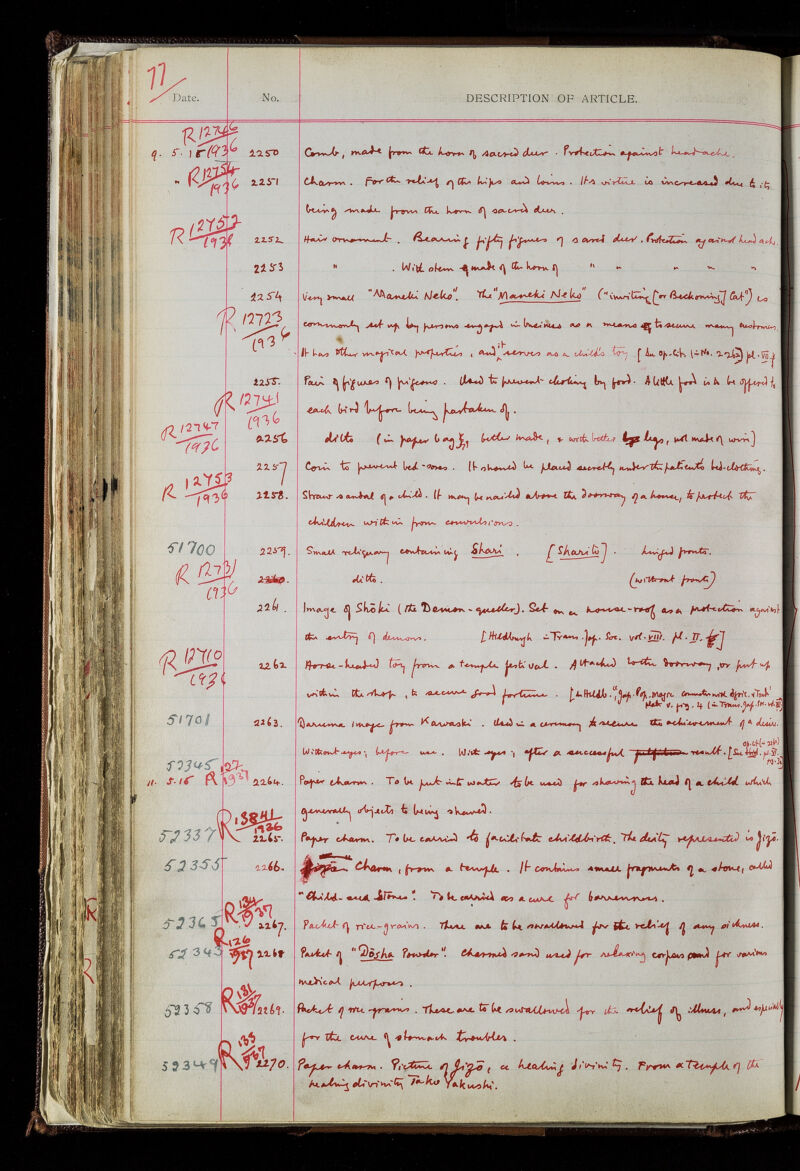 77
Date. No. DESCRIPTION OF ARTICLE.
R 12746
9. 5. 18 1936 2250 Comb, made from the horn of sacred deer. Protection against headache.
" R 12754
1936 2251 Charm. For the relief of the hips and loins. Its virtue is increased due to its
being made from the horn of sacred deer.
R 12752
1936 2252 Hair ornament. Bearing fifty figures of sacred deer. Protection against headache.
2253 " . With stem made of the horn of " " " " "
2254 Very small "Maneki Neko". The "Maneki Neko" ("inviting [or Beckoning] Cat") is
R 12723
1936 commonly set up by persons engaged in business as a means to secure many customers.
It has other magical properties, and it serves as a child's toy. [In op. cit. (in No. 2262) pl. VII
2255. Pair of figures of pigeons. Used to prevent choking by food. A little food is to be offered to
R 12741
1936 each bird before being partaken of.
R 12747
1936 2256 ditto (in paper bag, better made, & with better legs, not made of wire)
2257 Coin to prevent bed-sores. It should be placed secretly under the patient's bed-clothing.
R 12753
1936 2258. Straw sandal of a child. It may be nailed above the doorway of a house, to protect the
children within from convulsions.
51700 2259. Small reliquary containing Shari. [Sharito]. hinged fronts.
R 12731
1936 2260. ditto. (without fronts)
2261. Image of Shōki (the Demon-queller). Set on a house-roof as a protection against
the entry of demons. [Hildburgh in Trans. Jap. Soc. vol. XIII. pl. II.
R 12710
1936 2262 Horse-headed toy from a temple festival. Attached to the doorway, or put up
within the shop, to secure good fortune. [In Hildb., "Jap. Pop. Magic
Plate V. fig. 4 (in Trans. Jap. Soc.
51701 2263. Daruma image from Kawasaki. Used in a ceremony to secure the achievement of a desire.
Without eyes; before use. With eyes; after a successful result. [See op. cit.
52345
11. 5. 18 R 127
1937 2264. Paper charm. To be put into water to be used for shaving the head of a child which
generally objects to being shaved.
52337 R 13841
1936
2265. Paper charm. To be carried to facilitate childbirth. The deity represented is Jizō.
52355 2266. Charm, from a temple. It contains small fragments of a stone, called
"Child-seed Stones". To be carried as a cure for barrenness.
52365 R 134
1937 2267. Packet of rice-grains. These are to be swallowed for the relief of any sickness.
52343 R 126
1937 2268 Packet of "Dōsha Powder". Charmed sand used for relaxing corpses and for various
medical purposes.
52358 R 131
1937 2269. Packet of rice-grains. These are to be swallowed for the relief of illness, and especially
for the cure of stomach troubles.
52349 R 133
1937 2270. Paper charm. Picture of Jizō, a healing divinity. From a temple of the
healing divinity Tako Yakushi.